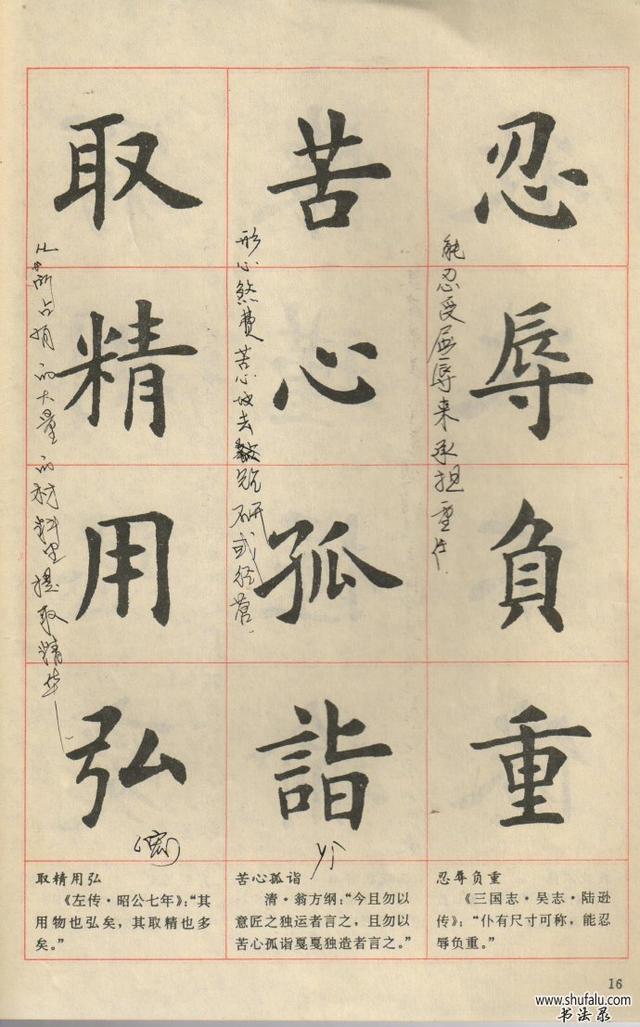 忍辱负重
苦心孤詣
取精用弘
能忍受屈辱来承担重任
形心煞费苦心地去钻研或经营.
从所占有的大量的材料里提取精华
(宏)
yì
忍辱负重
《三国志·吴志·陆逊
传》：“仆有尺寸可称，能忍
辱负重。”
苦心孤诣
清·翁方纲：“今且勿以
意匠之独运者言之，且勿以
苦心孤诣戛戛独造者言之。”
取精用弘
《左传·昭公七年》：“其
用物也弘矣，其取精也多
矣。”
16
www.shufalu.com
书法录